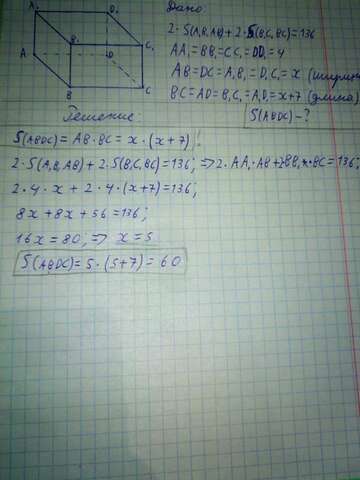 Дано:
2·S(A₁B₁AB)+2·S(B₁C₁BC)=136
AA₁=BB₁=CC₁=DD₁=4
AB=DC=A₁B₁=D₁C₁=x (ширина)
BC=AD=B₁C₁=A₁D₁=x+7 (длина)
S(ABDC)-?
A₁
D₁
B₁
C₁
A
D
B
C
Решение:
S(ABDC)=AB·BC=x·(x+7)!
2·S(A₁B₁AB)+2·S(B₁C₁BC)=136; ⇒ 2·AA₁·AB+2BB₁·BC=136;
2·4·x+2·4·(x+7)=136;
8x+8x+56=136;
16x=80; ⇒ x=5
S(ABDC)=5·(5+7)=60